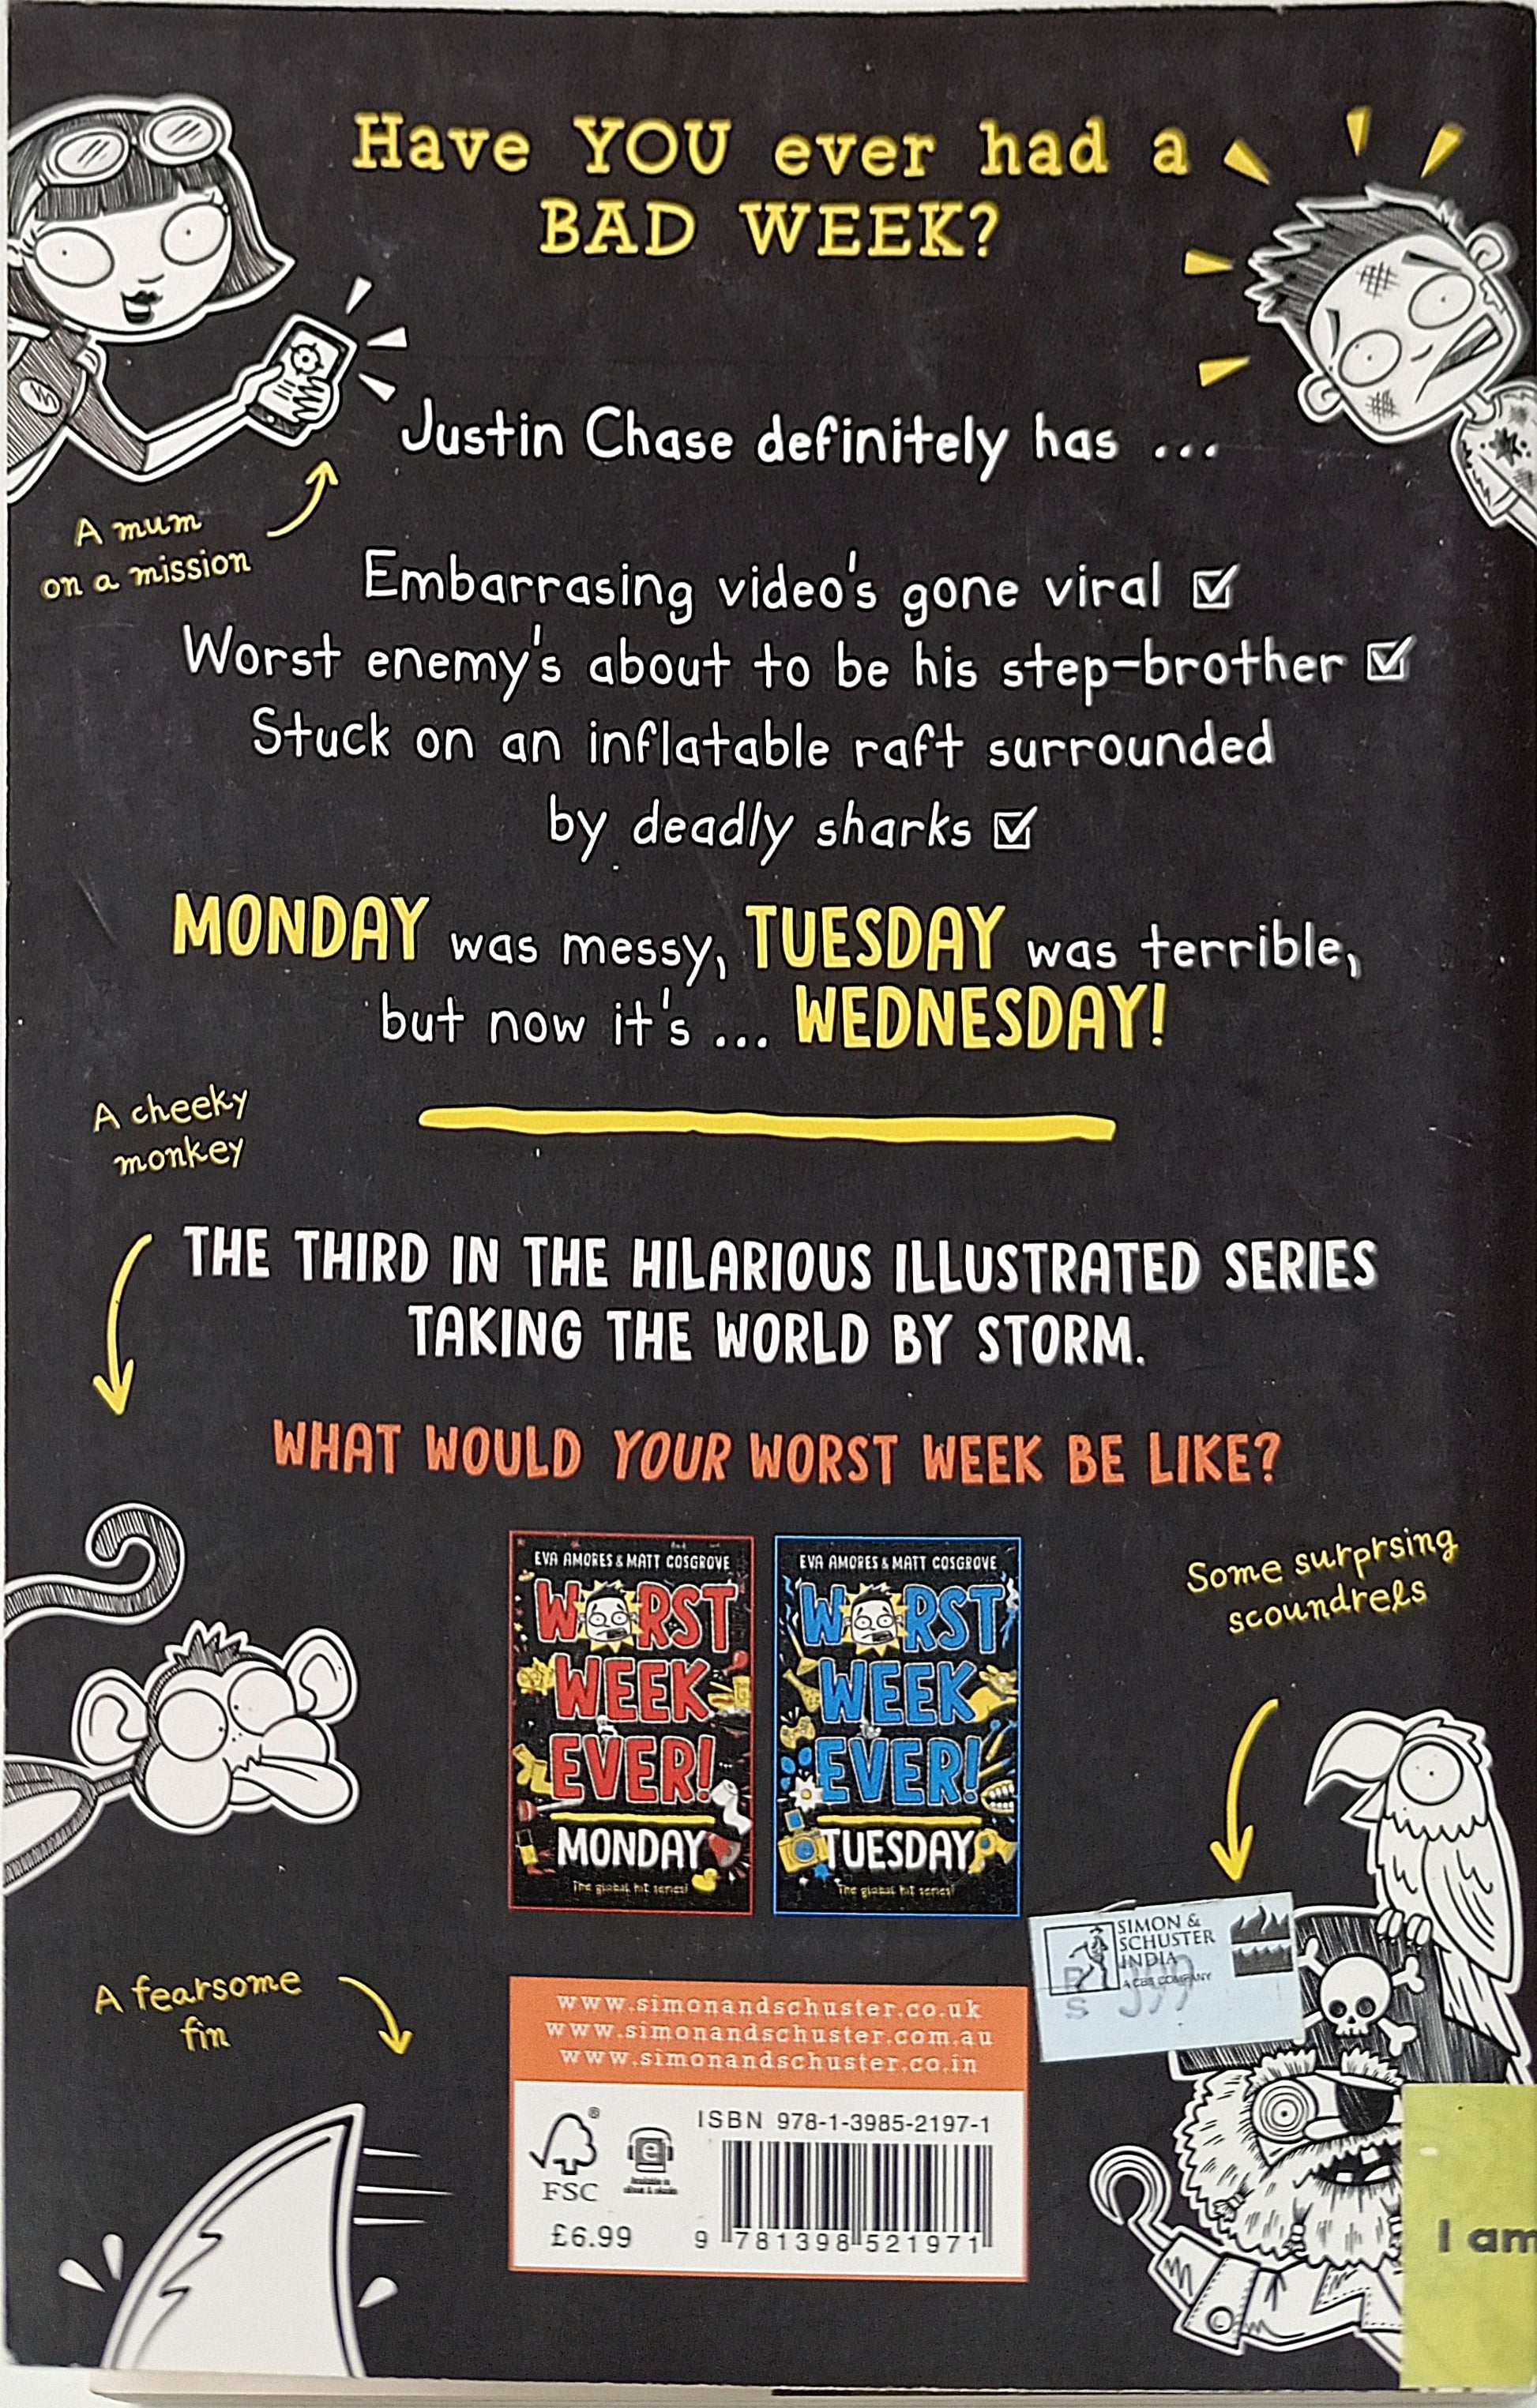 Have YOU ever had a
BAD WEEK?
Justin Chase definitely has ...
A mum
on a mission
Embarrasing video's gone viral
Worst enemy's about to be his step-brother
Stuck on an inflatable raft surrounded
by deadly sharks
MONDAY was messy, TUESDAY was terrible,
but now it's ... WEDNESDAY!
A cheeky
monkey
THE THIRD IN THE HILARIOUS ILLUSTRATED SERIES
TAKING THE WORLD BY STORM.
WHAT WOULD YOUR WORST WEEK BE LIKE?
EVA AMORES & MATT COSGROVE
WORST
WEEK
EVER!
MONDAY
The global hit series!
EVA AMORES & MATT COSGROVE
WORST
WEEK
EVER!
TUESDAY
The global hit series!
Some surprsing
scoundrels
SIMON &
SCHUSTER
INDIA
A CBS COMPANY
RS 399
A fearsome
fin
www.simonandschuster.co.uk
www.simonandschuster.com.au
www.simonandschuster.co.in
ISBN 978-1-3985-2197-1
FSC
£6.99
9 781398 521971
I am